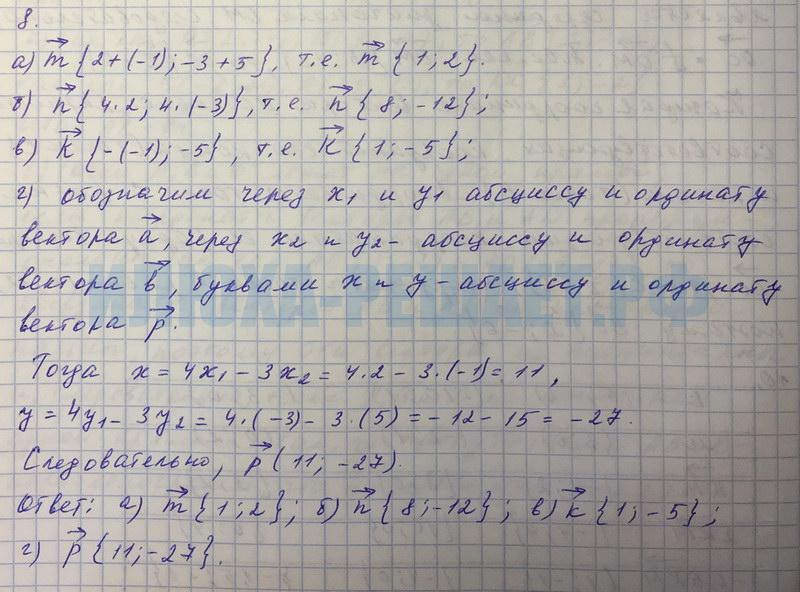 8.
а) m⃗ {2+(-1); -3+5}, т.е. m⃗ {1; 2}.
б) n⃗ {4·2; 4·(-3)}, т.е. n⃗ {8; -12};
в) k⃗ {-(-1); -5}, т.е. k⃗ {1; -5};
г) обозначим через x₁ и y₁ абсциссу и ординату
вектора a⃗, через x₂ и y₂ - абсциссу и ординату
вектора b⃗, буквами x и y - абсциссу и ординату
вектора p⃗.
Тогда x = 4x₁ - 3x₂ = 4·2 - 3·(-1) = 11,
y = 4y₁ - 3y₂ = 4·(-3) - 3·(5) = -12 - 15 = -27.
Следовательно, p⃗ (11; -27).
Ответ: а) m⃗ {1; 2}; б) n⃗ {8; -12}; в) k⃗ {1; -5};
г) p⃗ {11; -27}.